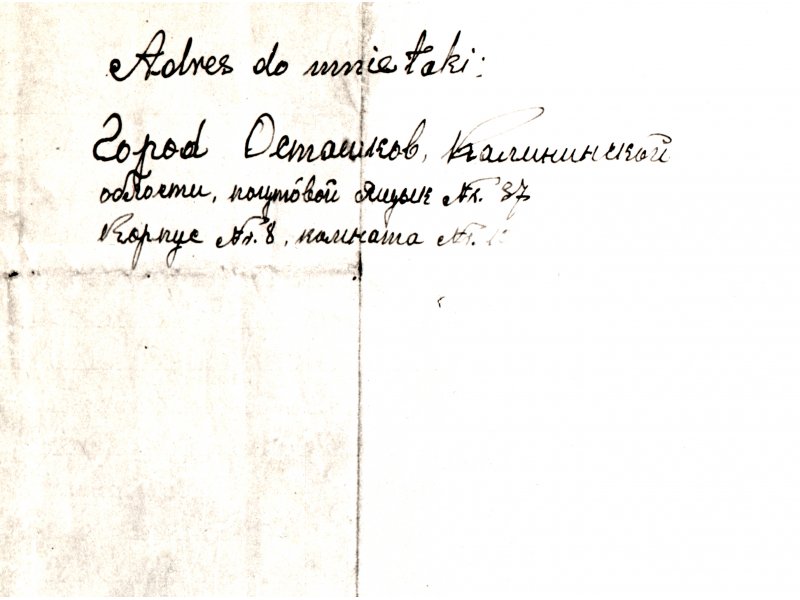 Adres do mnie taki:
Город Осташков, Калининской
области, почтовой ящык Nr. 37
Корпус Nr. 8, комната Nr.